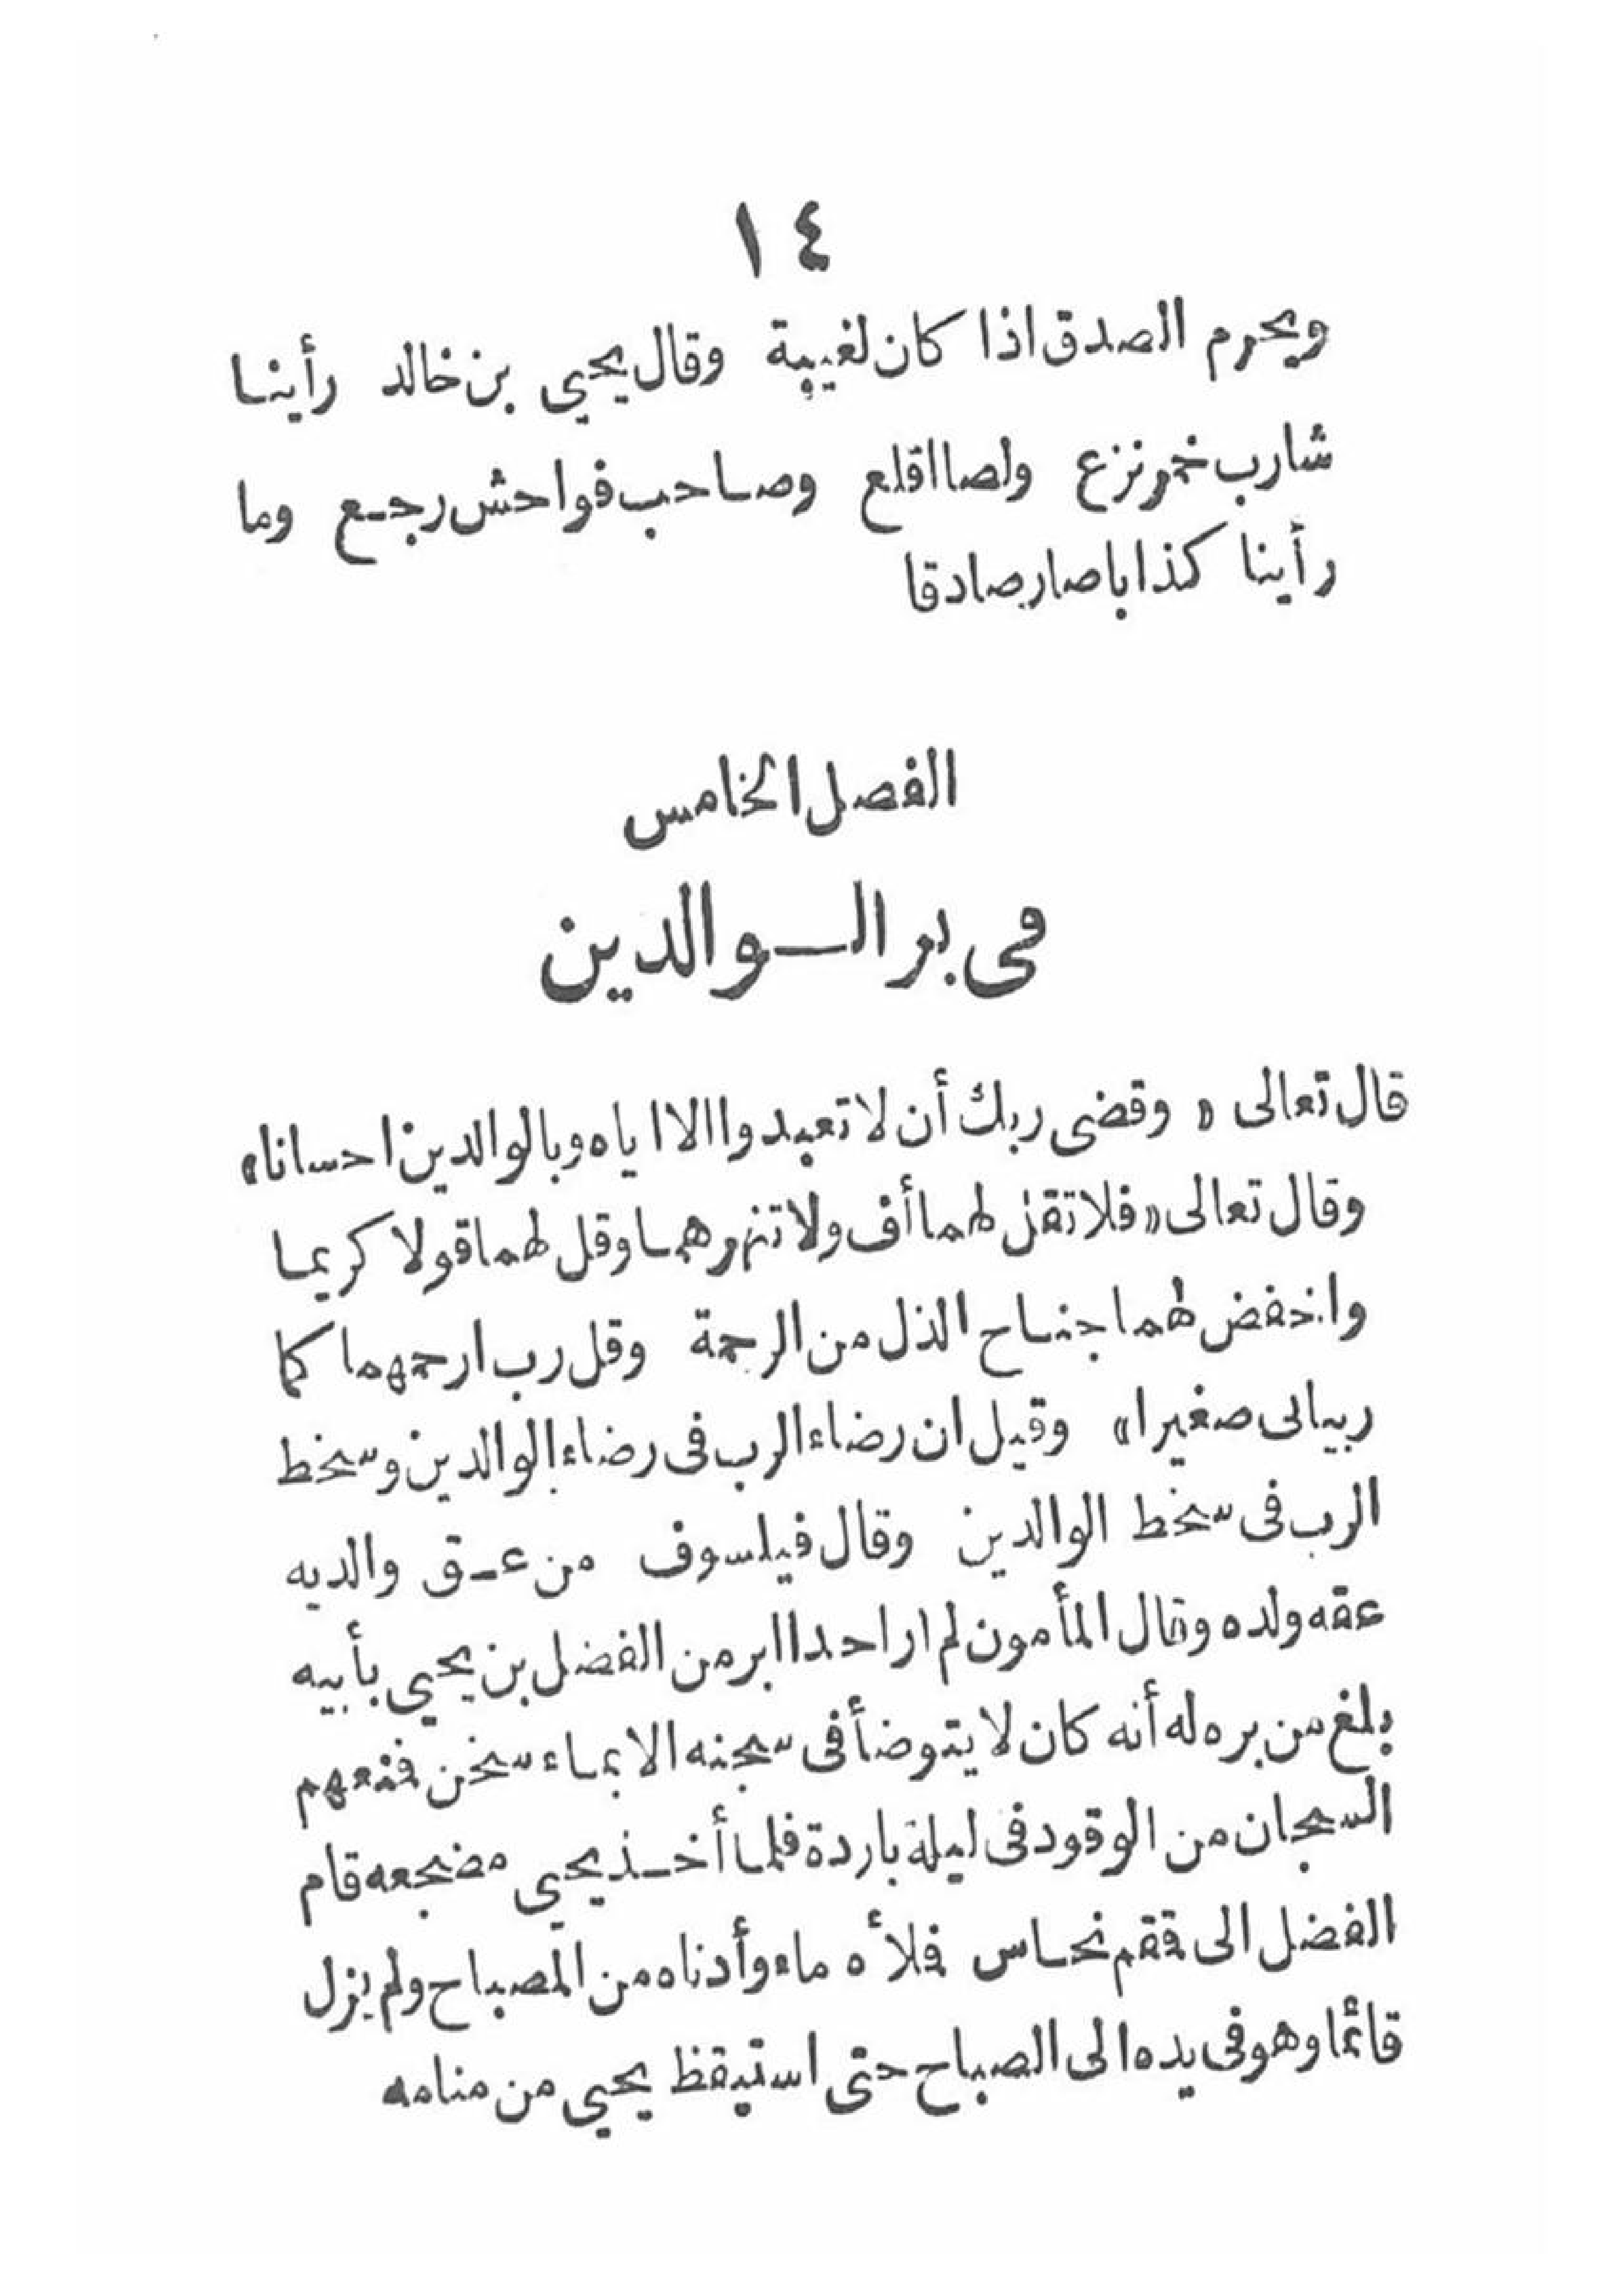 ١٤
ويحرم الصدق اذا كان لغيبة وقال يحيى بن خالد رأينا
شارب خمر نزع ولصا اقلع وصاحب فواحش رجع وما
رأينا كذابا صار صادقا
الفصل الخامس
فى بر الوالدين
قال تعالى « وقضى ربك أن لا تعبدوا الا اياه وبالوالدين احسانا»
وقال تعالى «فلا تقل لهما أف ولا تنهرهما وقل لهما قولا كريما
واخفض لهما جناح الذل من الرحمة وقل رب ارحمهما كما
ربيانى صغيرا» وقيل ان رضاء الرب فى رضاء الوالدين وسخط
الرب فى سخط الوالدين وقال فيلسوف من عق والديه
عقه ولده وقال المأمون لم ار احدا ابر من الفضل بن يحيى بأبيه
بلغ من بره له أنه كان لا يتوضأ فى سجنه الا بماء سخن فمنعهم
السجان من الوقود فى ليلة باردة فلما أخذ يحيى مضجعه قام
الفضل الى قمقم نحاس فملأه ماء وأدناه من المصباح ولم يزل
قائما وهو فى يده الى الصباح حتى استيقظ يحيى من منامه